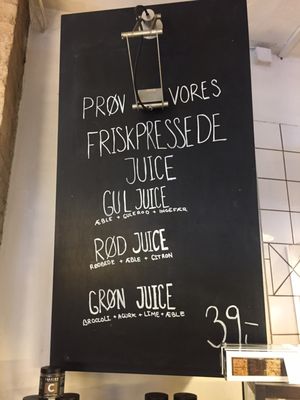 PRØV VORES
FRISKPRESSEDE
JUICE
GUL JUICE
ÆBLE + GULEROD + INGEFÆR
RØD JUICE
RØDBEDE + ÆBLE + CITRON
GRØN JUICE
BROCCOLI + AGURK + LIME + ÆBLE
39,-